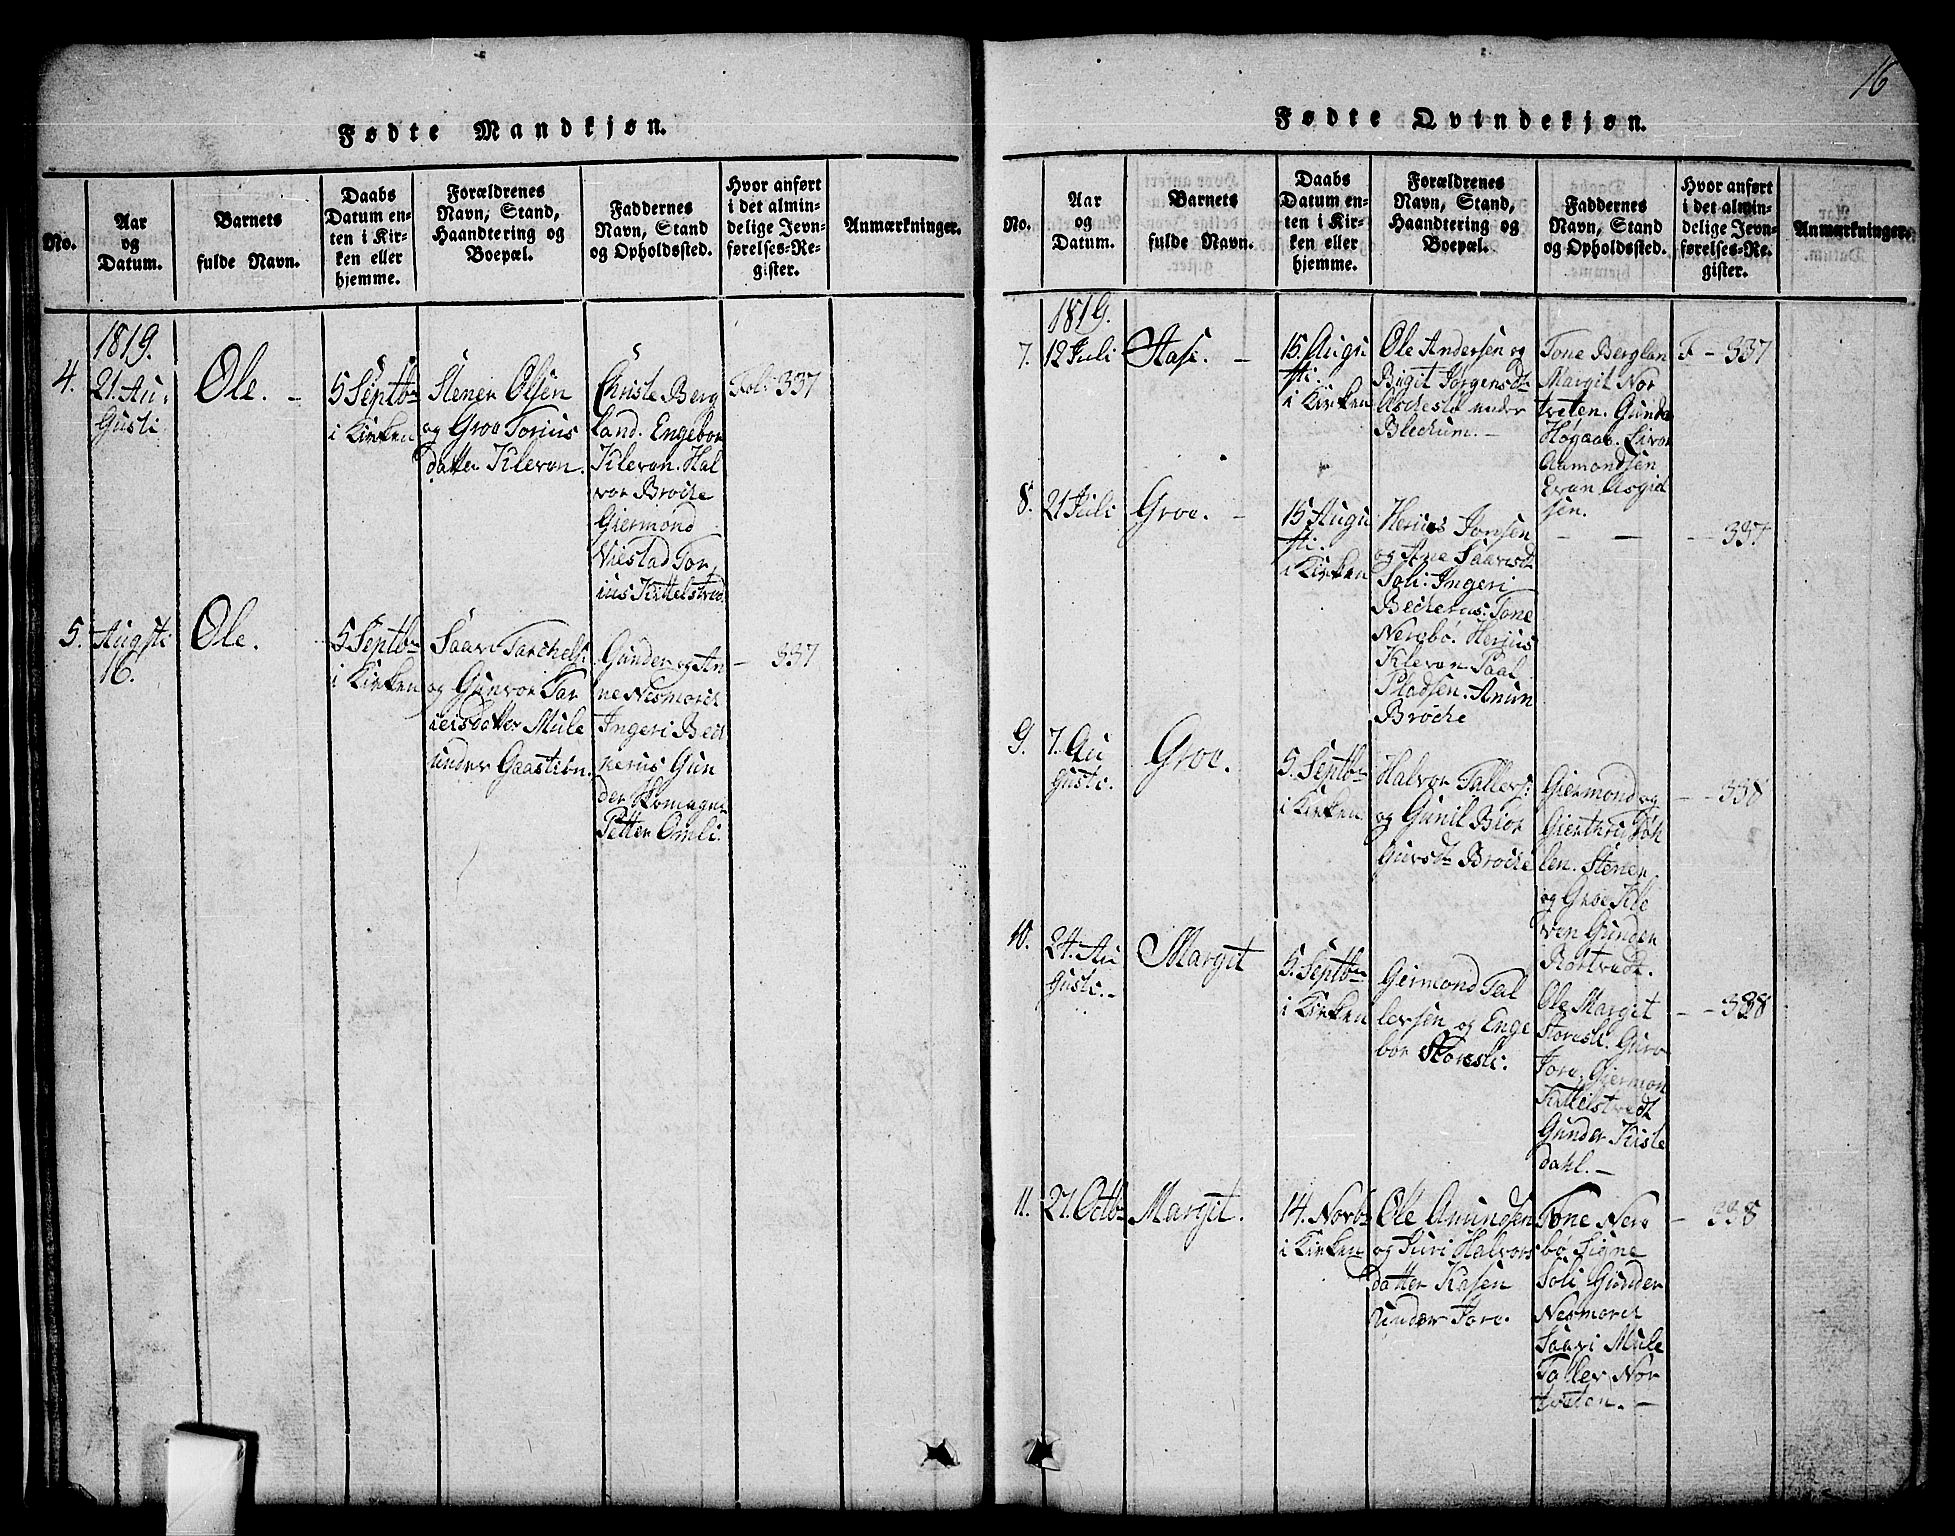 16
Fødte Mandkjøn.
No.
Aar
og
Datum.
Barnets
fulde Navn.
Daabs
Datum en-
ten i Kir-
ken eller
hjemme.
Forældrenes
Navn, Stand,
Haandtering og
Boepæl.
Faddernes
Navn, Stand
og Opholdssted.
Hvor anført
i det almin-
delige Jevn-
førelses-Re-
gister.
Anmærkninger.
1819.
4.
21. Au-
gusti
Ole. -
5 Septbr
i Kirken
Stener Olsen
og Groe Torius
datter Klevan.
Christe Berg
land. Engebor
Klevan. Hal
vor Broche
Giermond
Niestad Tor
ius Kittelstved.
Foli 337
5.
Augsti
16.
Ole.
5 Septbr
i Kirken
Saavi Tarchels:
og Gunvor Tar
iersdatter Mule
under Gaastiøn.
Gunder og An
ne Nesmoree
Ingeri Bec
kerus Gun
der Homagne
Petter Omli.
- 337
Fødte Qvindekjøn.
No.
Aar
og
Datum.
Barnets
fulde Navn.
Daabs
Datum en-
ten i Kir-
ken eller
hjemme.
Forældrenes
Navn, Stand,
Haandtering og
Boepæl.
Faddernes
Navn, Stand
og Opholdssted.
Hvor anført
i det almin-
delige Jevn-
førelses-Re-
gister.
Anmærkninger.
1819.
7.
12 Juli
Aase. -
15. Augu
sti.
i Kirken
Ole Andersen og
Bigit Jørgensdr
under
Blechum. -
Tone Berglan
Margit Nor
tveten. Gunda
Høgaas. Eivor
Aamondsen
Evan Asgid
sen.
F - 337
8.
21 Juli
Groe. -
15 Augu
sti.
i Kirken
Herius Jonsen
og Ane Saavesdr
Soli: Ingeri
Becherus: Tone
Nerebø. Herius
Klevan Paal
Pladsen. Anun
Brøche
- -
- 337
9.
7. Au
gusti.
Groe.
5. Septbr
i Kirken
Halvor Tallevs:
og Gunil Biør
guvsdr Brøche
Giermond og
Gienthri Døh
len. Stener
og Groe Kle
ven Gunder
Rørtvedt.
- - 338
10.
24. Au
gusti. -
Margit
5. Septbr
i Kirken
Germond Tal
levsen og Enge
bor Storesli.
Ole Margit
Storesli. Guro
Jore. Giermon
Kittelstvedt
Gunder Kiste
dahl. -
- - 338
11.
27. Octbr
Margit.
14. Novbr
i Kirken
Ole Anundsen
og Juri Halvors
datter Kasen
under Jore.
Tone Nere
bø Signe
Soli Gunder
Nesmoree
Saavi Mule
Tallev Nor
tveten. -
- 338